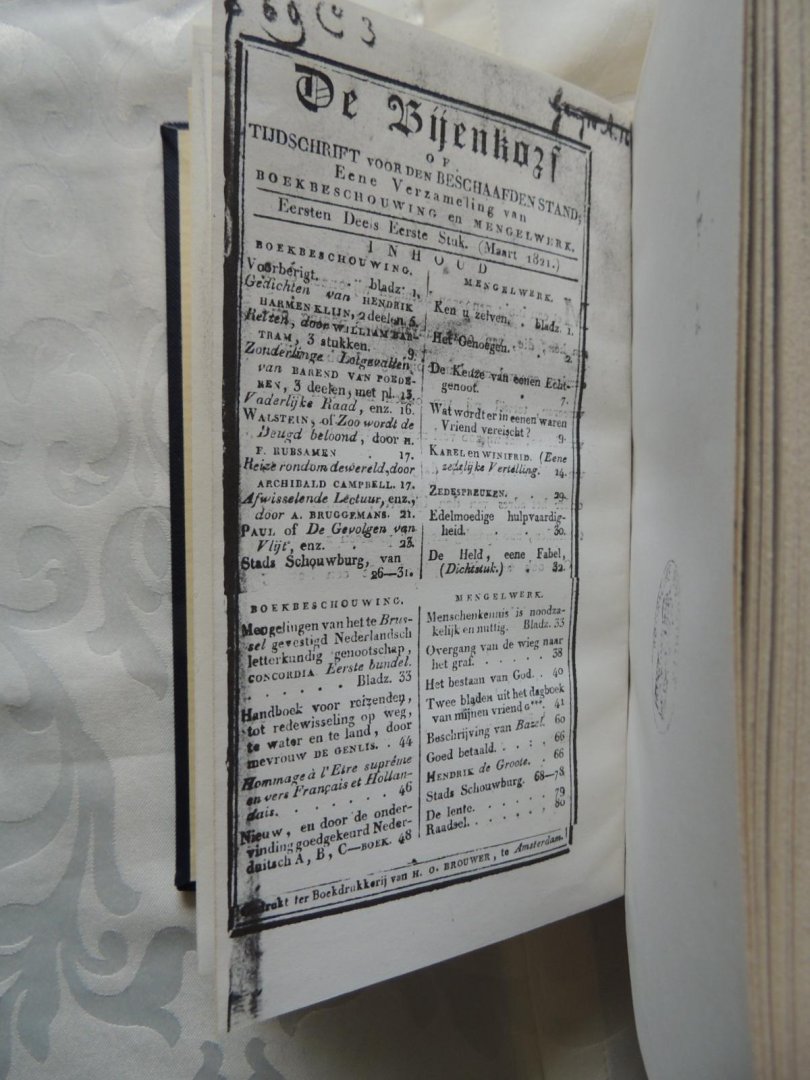 69 C 3
De Bijenkorf
OF
TIJDSCHRIFT VOOR DEN BESCHAAFDEN STAND;
Eene Verzameling van
BOEKBESCHOUWING en MENGELWERK.
Eersten Deels Eerste Stuk. (Maart 1821.)
INHOUD
BOEKBESCHOUWING.
Voorberigt. . bladz. 1.
Gedichten van HENDRIK
HARMEN KLIJN, 2 deelen. 5.
Reizen, door WILLIAM BAR-
TRAM, 3 stukken. 9.
Zonderlinge Lotgevallen
van BAREND VAN POEDE-
REN, 3 deelen, met pl. 13.
Vaderlijke Raad, enz. 16.
WALSTEIN, of Zoo wordt de
Deugd beloond, door H.
F. RUBSAMEN . 17.
Reize rondom de wereld, door
ARCHIBALD CAMPBELL. 17.
Afwisselende Lectuur, enz.,
door A. BRUGGEMANS. 21.
PAUL of De Gevolgen van
Vlijt, enz. . . 23.
Stads Schouwburg, van
26—31.
MENGELWERK.
Ken u zelven. . bladz. 1.
Het Genoegen. . . 2.
De Keuze van eenen Echt-
genoot. . 7.
Wat wordt er in eenen waren
Vriend vereischt? . 9.
KAREL en WINIFRID. (Eene
zedelijke Vertelling. 14.
ZEDESPREUKEN. . . 29.
Edelmoedige hulpvaardig-
heid. . . . 30.
De Held, eene Fabel,
(Dichtstuk.) . . 32.
BOEKBESCHOUWING.
Mengelingen van het te Brus-
sel gevestigd Nederlandsch
letterkundig genootschap,
CONCORDIA Eerste bundel.
. . . . . Bladz. 33
Handboek voor reizenden,
tot redewisseling op weg,
te water en te land, door
mevrouw DE GENLIS. . 44
Hommage à l'Etre suprême
en vers Français et Hollan-
dais. . . . . . . 46
Nieuw, en door de onder-
vinding goedgekeurd Neder-
duitsch A, B, C—BOEK. 48
MENGELWERK.
Menschenkennis is noodza-
kelijk en nuttig. Bladz. 33
Overgang van de wieg naar
het graf. . . . . . 38
Het bestaan van God. . 40
Twee bladen uit het dagboek
van mijnen vriend G***. 41
Beschrijving van Bazel. 60
Goed betaald. . . . 66
HENDRIK de Groote. . 66
Stads Schouwburg. 68—78
De lente. . . . . . 79
Raadsel. . . . . . 80
Gedrukt ter Boekdrukkerij van H. O. BROUWER, te Amsterdam.